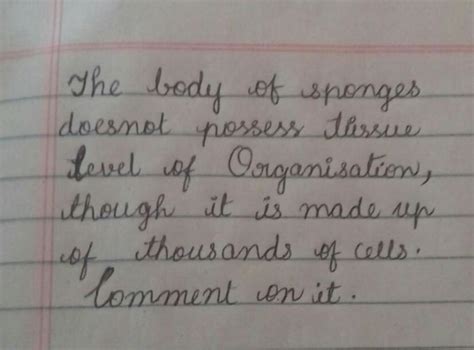 The body of sponges
doesnot possess thissue
level of Organisation,
though it is made up
of thousands of cells.
Comment on it.